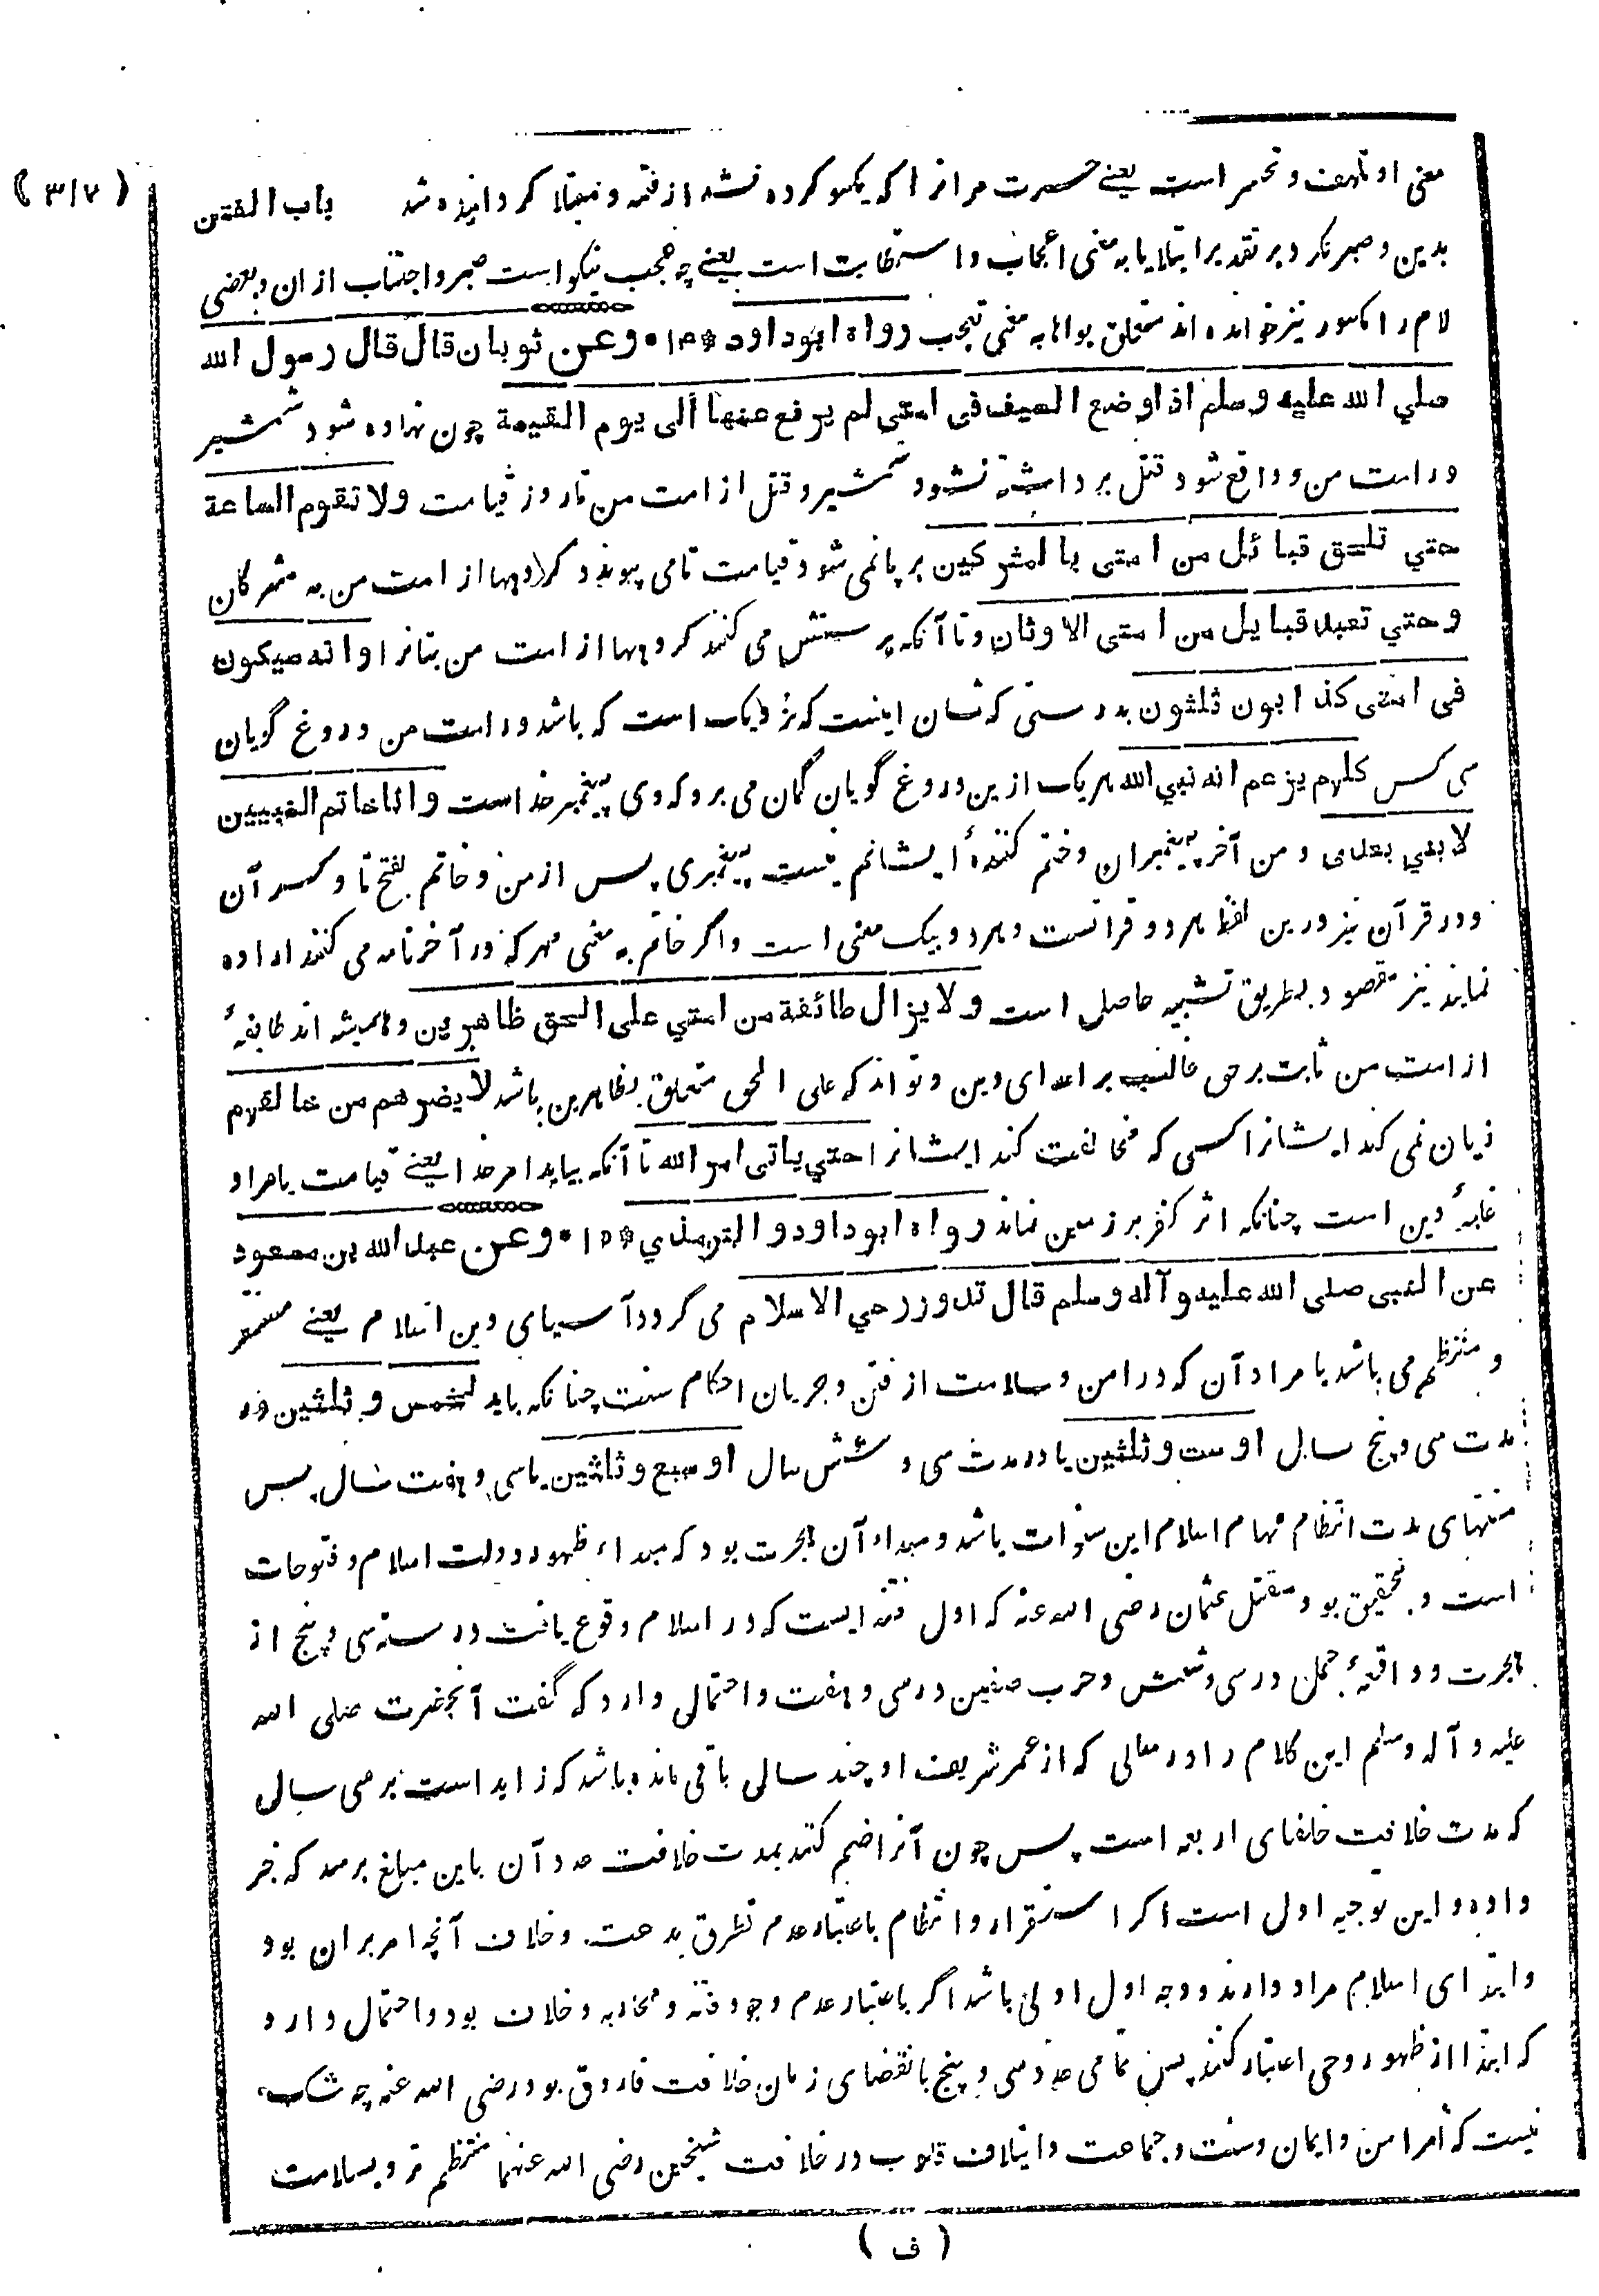 ( ۳۱۷ )
باب الفتن
معنی او تلهف و تحسر است یعنے حسرت مر انرا که یکسو کرده نشد از فتنه و مبتلا کردانیده شد
بدین و صبر نکرد و بر تقدیر ابتلا یا به معنی اعجاب و استطابت است یعنے چه عجب نیکو است صبر و اجتناب از ان و بعضی
لام را مکسور نیز خوانده اند متعلق بواها به معنی تعجب رواه ابوداود * ۱۴ * وعن ثوبان قال قال رسول الله
صلي الله عليه وسلم اذا وضع السيف فى امتى لم يرفع عنها الى يوم القيمة چون نهاده شود شمشیر
در امت من و واقع شود قتل برداشته نشود شمشیر و قتل از امت من تا روز قیامت ولا تقوم الساعة
حتي تلحق قبائل من امتى بالمشركين بر پا نمی شود قیامت تا می پیوندد گروهها از امت من به مشرکان
وحتي تعبد قبايل من امتى الاوثان و تا آنکه پرستش می کنند گروهها از امت من بتانرا وانه سيكون
فى امتى كذابون ثلثون بدرستی که شان اینست که نزدیک است که باشد در امت من دروغ گویان
سی کس كلهم يزعم انه نبي الله هر یک ازین دروغ گویان گمان می برد که وی پیغمبر خداست وانا خاتم النبيين
لا نبي بعدى و من آخر پیغمبران و ختم کنندهٔ ایشانم نیست پیغمبری پس از من و خاتم بفتح تا و کسر آن
و در قرآن نیز درین لفظ هر دو قرائتست و هر دو بیک معنی است و اگر خاتم به معنی مهر که در آخر نامه می کنند اراده
نمایند نیز مقصود بطریق تشبیه حاصل است ولا يزال طائفة من امتي على الحق ظاهرين و همیشه اند طایفهٔ
از امت من ثابت بر حق غالب بر اعدای دین و تواند که علی الحق متعلق بظاهرین باشد لا يضرهم من خالفهم
زیان نمی کند ایشانرا کسی که مخالفت کند ایشانرا حتي ياتى امر الله تا آنکه بیاید امر خدا یعنے قیامت یا مراد
غلبهٔ دین است چنانکه اثر کفر بر زمین نماند رواه ابوداود والترمذي * ۱۵ * وعن عبد الله بن مسعود
عن النبى صلى الله عليه وآله وسلم قال تدور رحي الاسلام می گردد آسیای دین اسلام یعنے مستقر
و منتظم می باشد یا مراد آن که در امن و سلامت از فتن و جریان احکام سنت چنانکه باید لخمس وثلثين در
مدت سی و پنج سال او ست وثلثين یا در مدت سی و شش سال او سبع وثلثين یا سی و هفت سال پس
منتهای مدت انتظام مهام اسلام این سنوات باشد و مبداء آن هجرت بود که مبداء ظهور دولت اسلام و فتوحات
است و بتحقیق بود مقتل عثمان رضی الله عنه که اول فتنه ایست که در اسلام وقوع یافت در سنه سی و پنج از
هجرت و واقعهٔ جمل در سی و شش و حرب صفین در سی و هفت و احتمال دارد که گفت آنحضرت صلی الله
علیه و آله وسلم این کلام را در سالی که از عمر شریف او چند سالی باقی مانده باشد که زاید است بر سی سال
که مدت خلافت خلفای اربعه است پس چون آنرا ضم کنند بمدت خلافت عدد آن باین مبلغ برسد که خبر
داده و این توجیه اولی است اگر استقرار و انتظام باعتبار عدم تطرق بدعت و خلاف آنچه امر بران بود
و ابتدای اسلام مراد دارند و وجه اول اولی باشد اگر باعتبار عدم وجود فتنه و محاربه و خلاف بود و احتمال دارد
که ابتدا از ظهور وحی اعتبار کنند پس تمامی عدد سی و پنج بانقضای زمان خلافت فاروق بود رضی الله عنه چه شک
نیست که امر امن و ایمان و سنت و جماعت و ایتلاف قلوب در خلافت شیخین رضی الله عنهما منتظم تر و بسلامت
( ف )